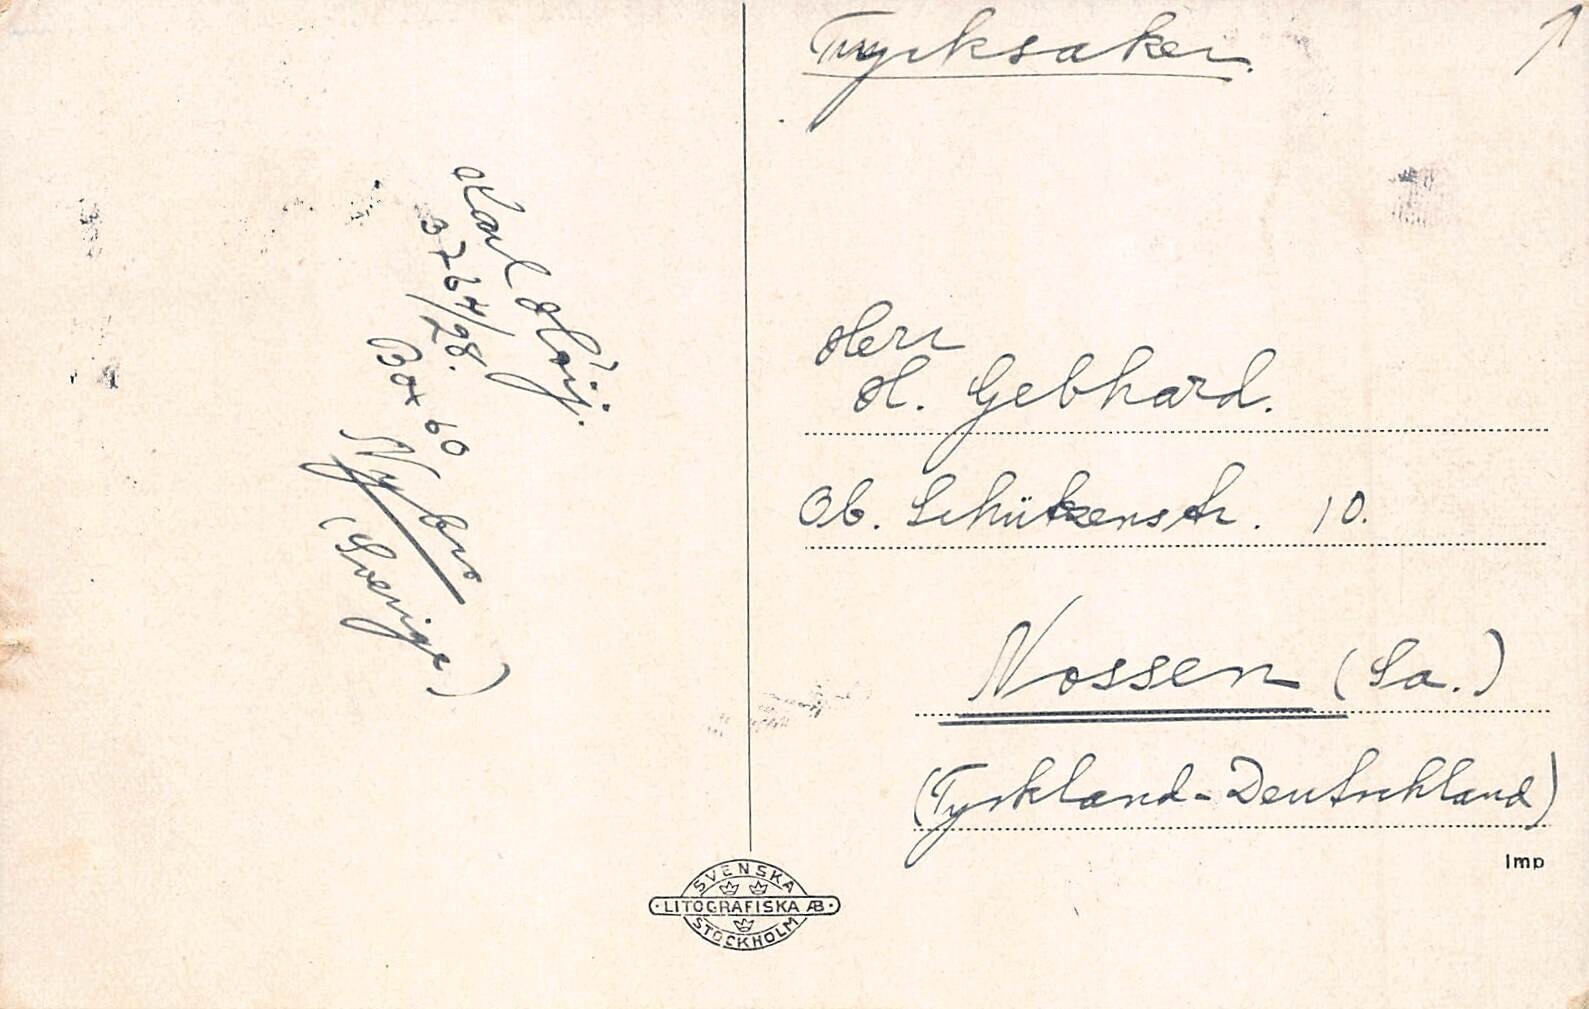 Trycksaker.
Karl Höij.
3764/28.
Box 60
Nybro
(Sverige)
Herr
H. Gebhard.
Ob. Schützenstr. 10.
Nossen (Sa.)
(Tyskland-Deutschland)
Imp
SVENSKA
LITOGRAFISKA AB
STOCKHOLM